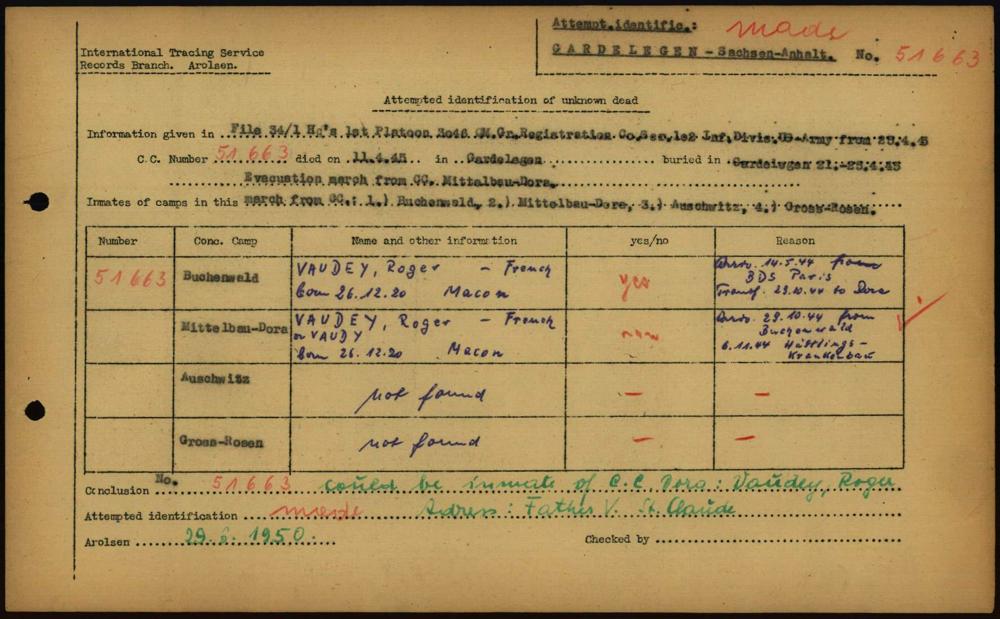 Attempt.identific.: made
GARDELEGEN - Sachsen-Anhalt. No. 51663
International Tracing Service
Records Branch. Arolsen.
Attempted identification of unknown dead
Information given in File 34/1 Hq's 1st Platoon 3046 QM.Gr.Registration.Co.Sec.102 Inf.Divis.US-Army from 25.4.45
C.C. Number 51663 died on 11.4.45 in Gardelegen buried in Gardelegen 21.-25.4.45
Evacuation march from CC. Mittelbau-Dora.
Inmates of camps in this march from CC.: 1.) Buchenwald, 2.) Mittelbau-Dora, 3.) Auschwitz, 4.) Gross-Rosen.
Number Conc. Camp Name and other information yes/no Reason
51663 Buchenwald VAUDEY, Roger - French yes Arrv. 14.5.44 from
born 26.12.20 Macon BDS Paris
Transf. 29.10.44 to Dora
Mittelbau-Dora VAUDEY, Roger - French Arrv. 29.10.44 from
or VAUDY Buchenwald
born 26.12.20 Macon 6.11.44 Häftlings-
Krankenbau
Auschwitz not found - -
Gross-Rosen not found - -
Conclusion No. 51663 could be inmate of C.C. Dora: Vaudey, Roger
Attempted identification made Adress: Father V. St. Claude
Arolsen 29.6.1950. Checked by